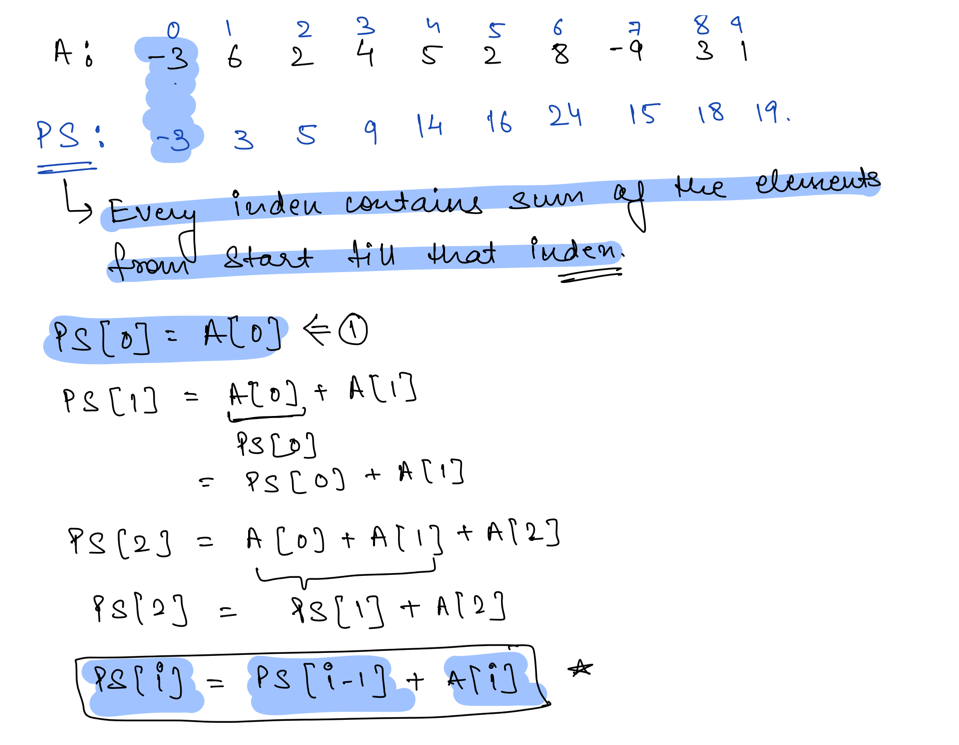 0 1 2 3 4 5 6 7 8 9
A: -3 6 2 4 5 2 8 -9 3 1
PS: -3 3 5 9 14 16 24 15 18 19.
↳ Every index contains sum of the elements
from start till that index.
PS[0] = A[0] ⇐ ①
PS[1] = A[0] + A[1]
PS[0]
= PS[0] + A[1]
PS[2] = A[0] + A[1] + A[2]
PS[2] = PS[1] + A[2]
PS[i] = PS[i-1] + A[i] ☆